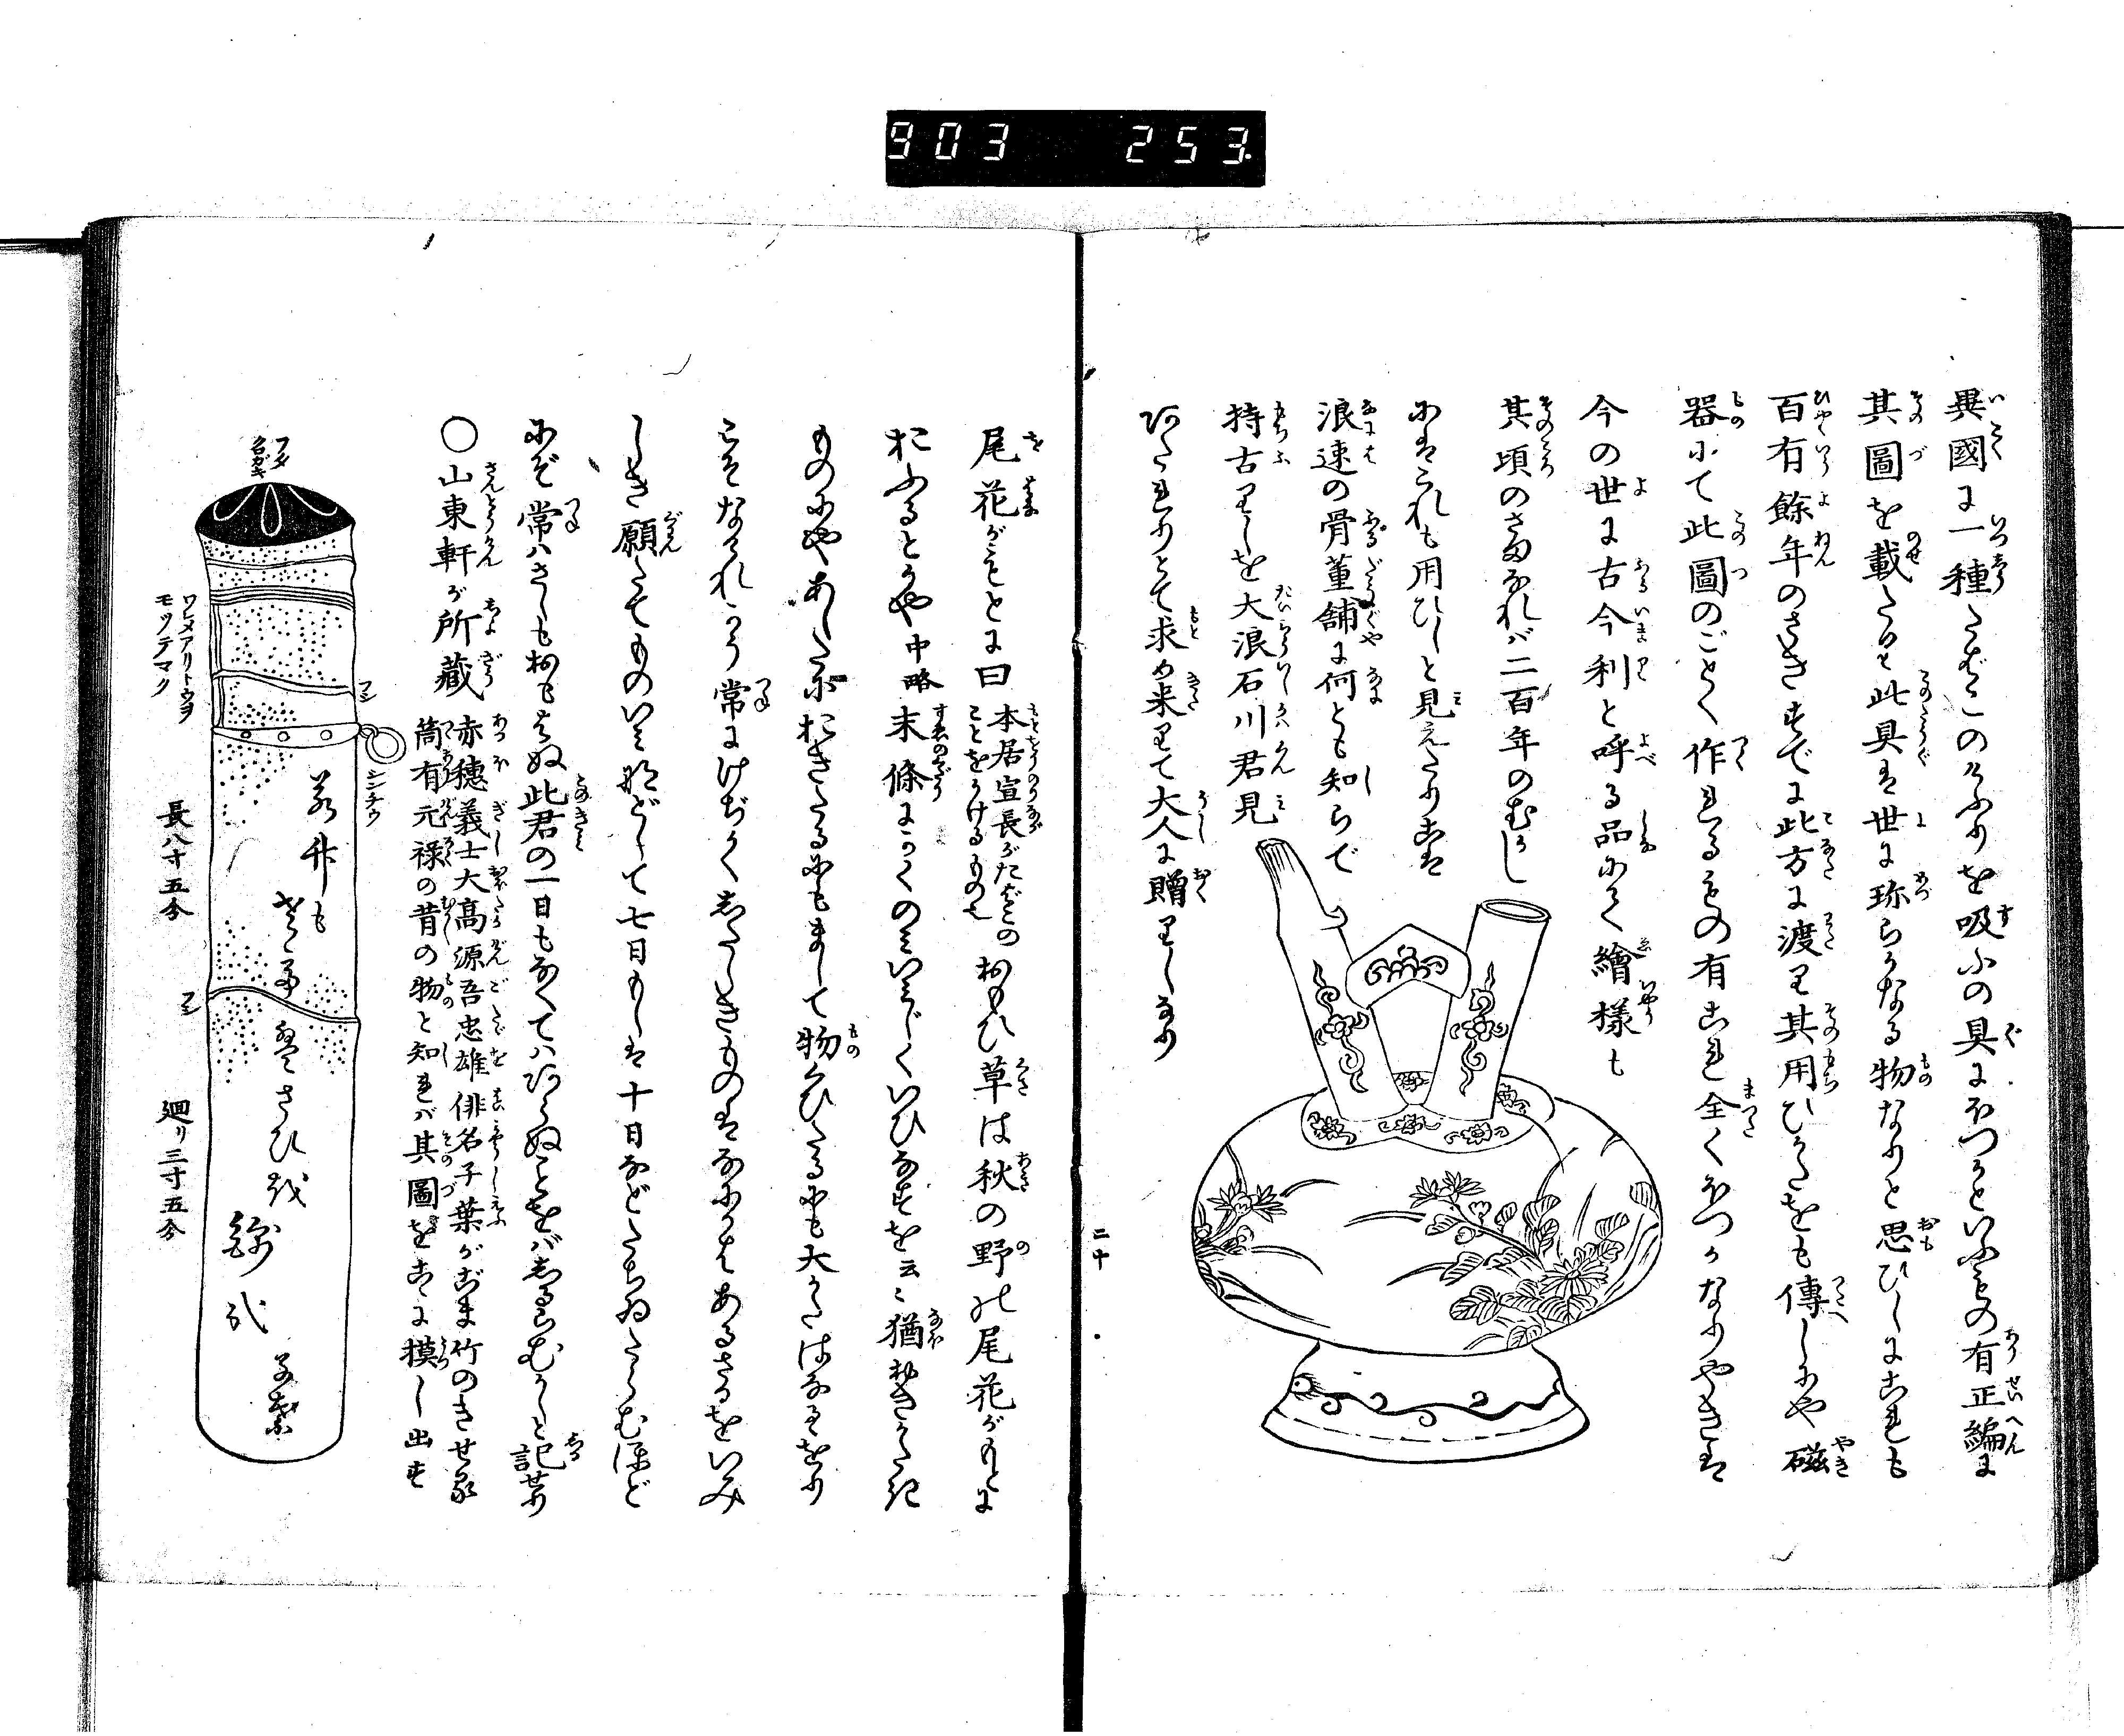 903 253
異國に一種たばこのけふりを吸ふの具にほつかといふもの有正編に
其圖を載たりき此具は世に珎らかなる物なりと思ひしにこれも
百有餘年のさきすでに此方に渡り其用ひかたをも傳しにや磁
器にて此圖のごとく作れるもの有これ全くほつかなりやきは
今の世に古今利と呼る品にて繪様も
其頃のさまなれバ二百年のむかし
にはこれも用ひしと見えたりこは
浪速の骨董舗に何とも知らで
持古りしを大浪石川君見
あたれりとて求め来りて大人に贈りしなり
二十
尾花がもとに曰
本居宣長がたばこの
ことをかけるもの也
おもひ草は秋の野の尾花がもとに
おふるとかや中略末條にかくのみいみじくいひなすを云〻猶おきがたき
ものにやあしたにおきたるにもまして物くひたるにも大かたはなるをり
こそなけれかう常にけぢかくしたしきものはなにかはあるさるをいみ
しき願たてものいみなどして七日もしは十日などたちゐたらむほど
にぞ常ハさしもおもはぬ此君の一日もなくてハあらぬことをバしるらむかしと記せり
〇山東軒が所蔵
赤穗義士大高源吾忠雄俳名子葉がごま竹のきせる
筒有元禄の昔の物と知れバ其圖をこゝに摸し出す
フタ
クロガキ
フシ
シンチウ
ワレメアリトウヨ
モツテマク
フシ
長八寸五分
廻リ三寸五分
子葉